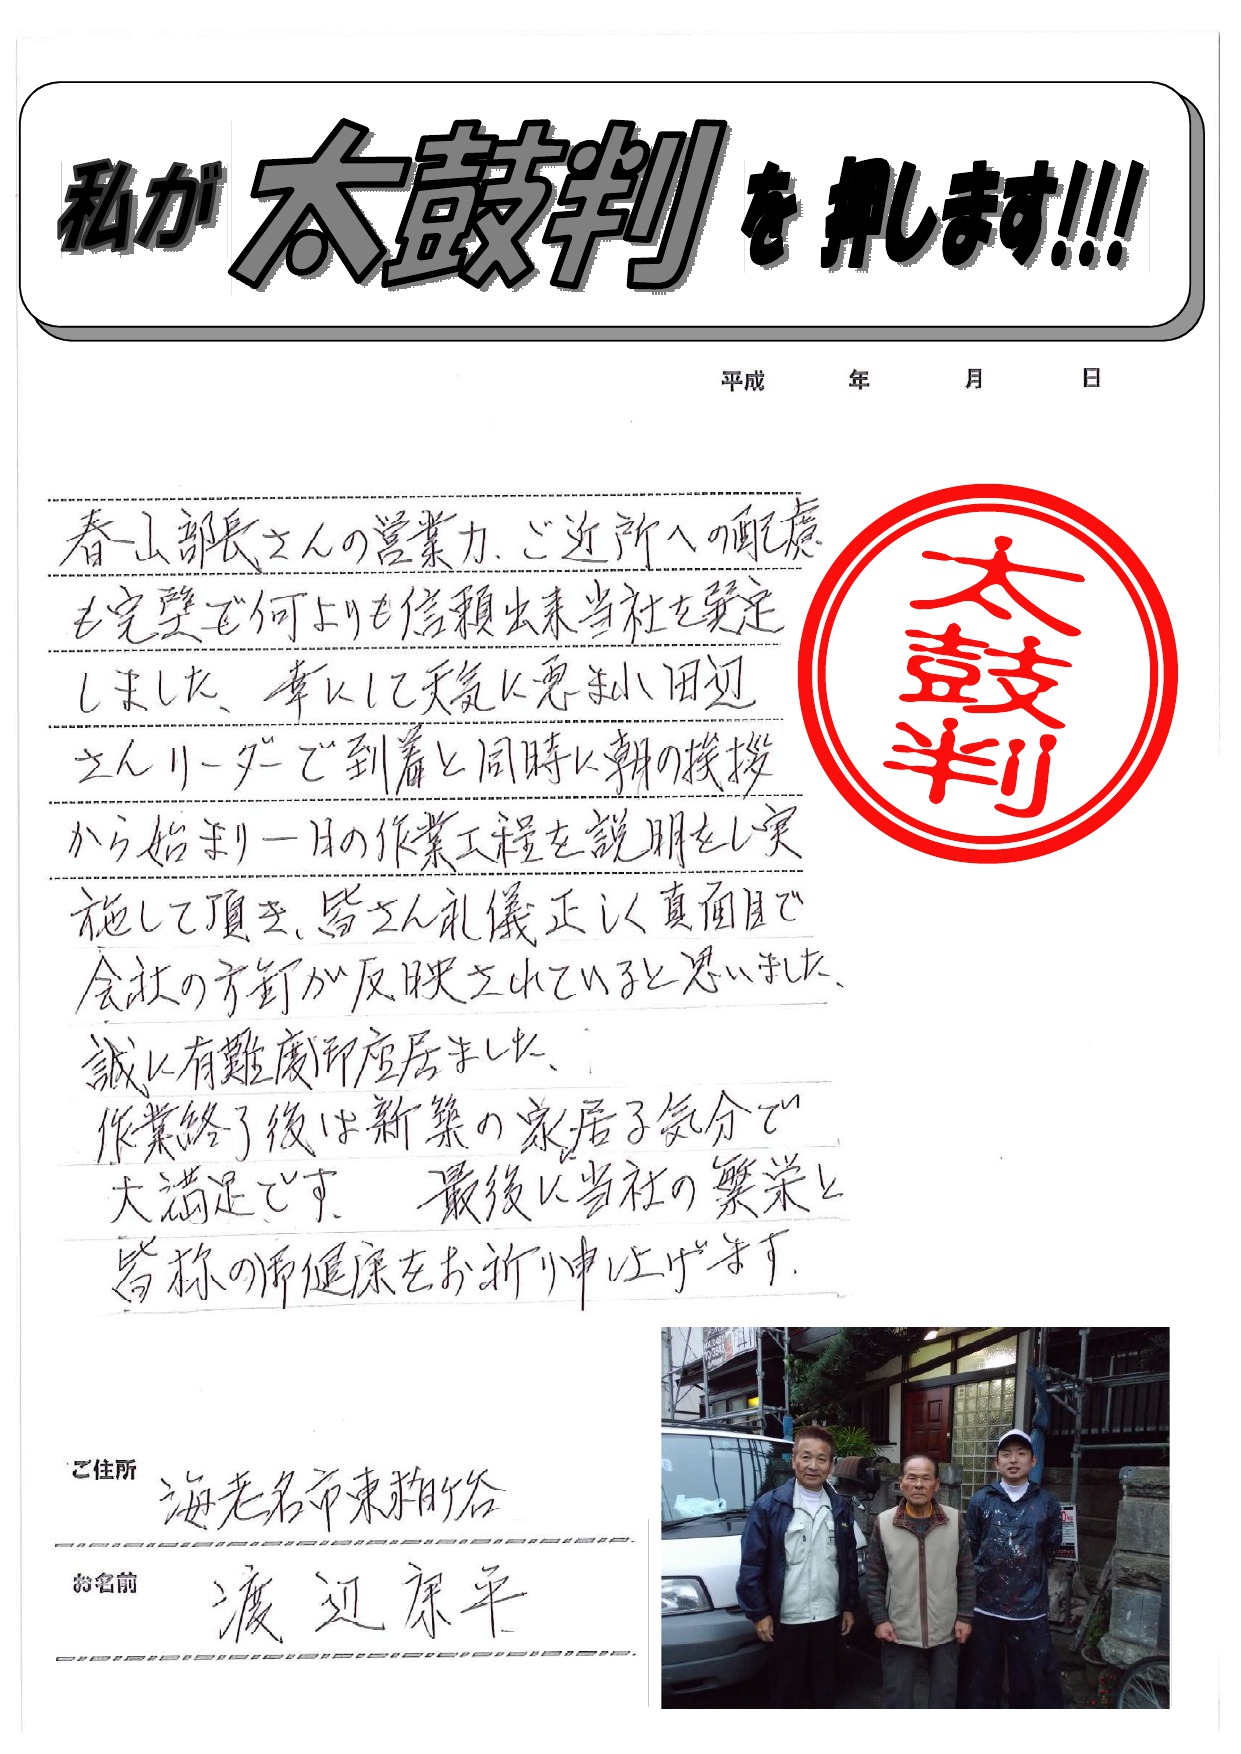 私が 太鼓判 を 押します!!!
平成 年 月 日
春山部長さんの営業力、ご近所への配慮
も完璧で何よりも信頼出来当社を選定
しました、幸にして天気に恵ま小田辺
さんリーダーで到着と同時に朝の挨拶
から始まり一日の作業工程を説明をし実
施して頂き、皆さん礼儀正しく真面目で
会社の方針が反映されていると思いました、
誠に有難度御座居ました、
作業終了後は新築の家に居る気分で
大満足です、 最後に当社の繁栄と
皆様の御健康をお祈り申し上げます.
太鼓判
ご住所 海老名市東柏ケ谷
お名前 渡辺康平